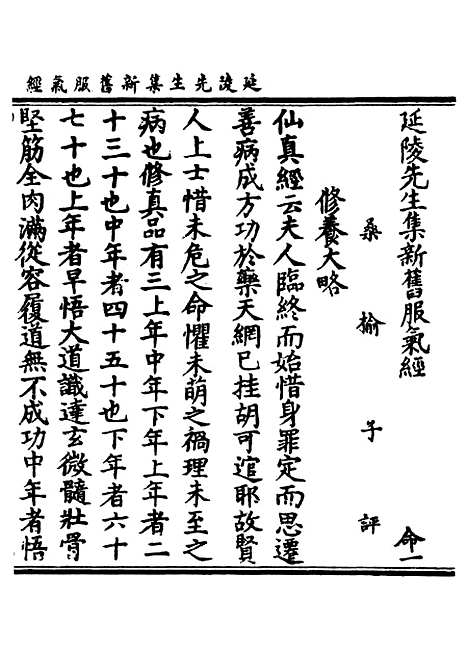 延陵先生集新舊服氣經
延陵先生集新舊服氣經
命一
桑榆子評
修養大略
仙真經云夫人臨終而始惜身罪定而思遷
善病成方功於藥天網已挂胡可逭耶故賢
人上士惜未危之命懼未萌之禍理未至之
病也修真品有三上年中年下年上年者二
十三十也中年者四十五十也下年者六十
七十也上年者早悟大道識達玄微髓壯骨
堅筋全肉滿從容履道無不成功中年者悟